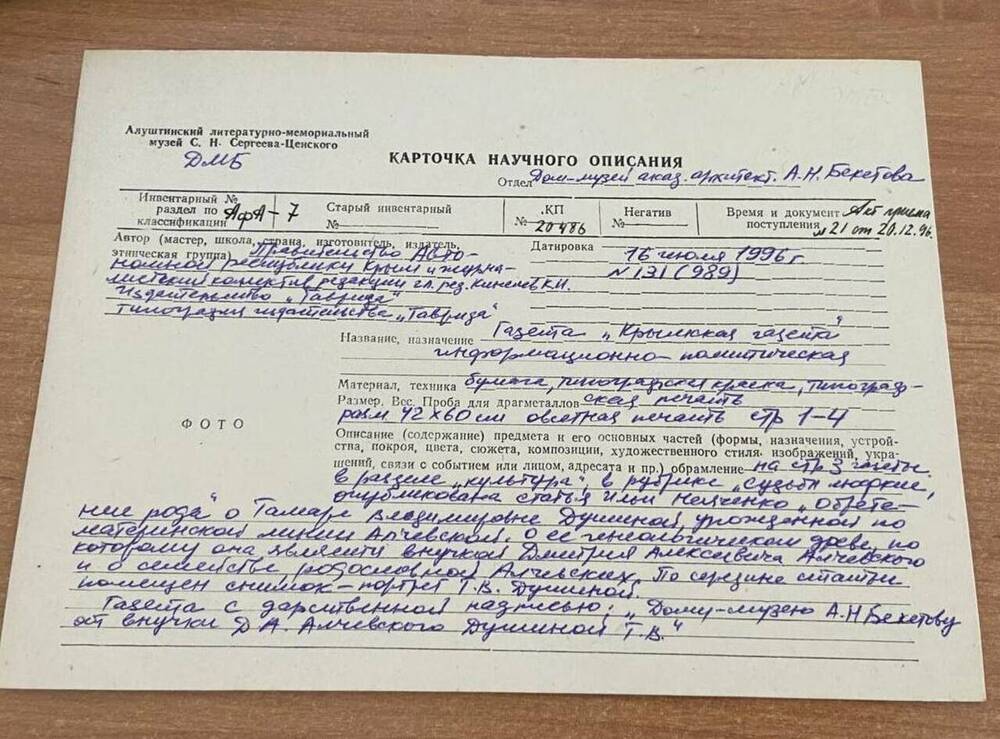 Алуштинский литературно-мемориальный
музей С. Н. Сергеева-Ценского
ДМБ
КАРТОЧКА НАУЧНОГО ОПИСАНИЯ
Отдел Дом-музей акад. архитект. А.Н. Бекетова
Инвентарный №
раздел по
классификации АфА-7
Старый инвентарный
КП
№ 20486
Негатив
№
Время и документ Акт приема
поступления №21 от 20.12.96.
Автор (мастер, школа, страна, изготовитель, издатель,
этническая группа) Правительство Авто-
номной республики Крым и журна-
листский коллектив редакции гл. ред. К.И.
Издательство „Таврида"
типография издательства „Таврида"
Датировка
16 июля 1996 г
N 131 (989)
Название, назначение Газета „Крымская газета"
информационно-политическая
Материал, техника бумага, типографская краска, типограф-
Размер, Вес. Проба для драгметаллов ская печать
разм. 42х60 см печать стр 1-4
ФОТО
Описание (содержание) предмета и его основных частей (формы, назначения, устрой-
ства, покроя, цвета, сюжета, композиции, художественного стиля изображений, укра-
шений, связи с событием или лицом, адресата и пр.) обрамление на стр 3 газеты
в разделе „культура", в рубрике „судьбы людские,
опубликована статья Ильи „Обрете-
ние рода" о Тамаре Владимировне Душиной, урожденной по
материнской линии Алчевской. О ее генеологическом древе, по
которому она является внучкой Дмитрия Алексеевича Алчевского
и о семействе родословной Алчевских. По середине статьи
помещен снимок-портрет Т.В. Душиной.
Газета с дарственной надписью: „Дому-музею А.Н Бекетову
от внучки Д.А. Алчевского Душиной Т.В."